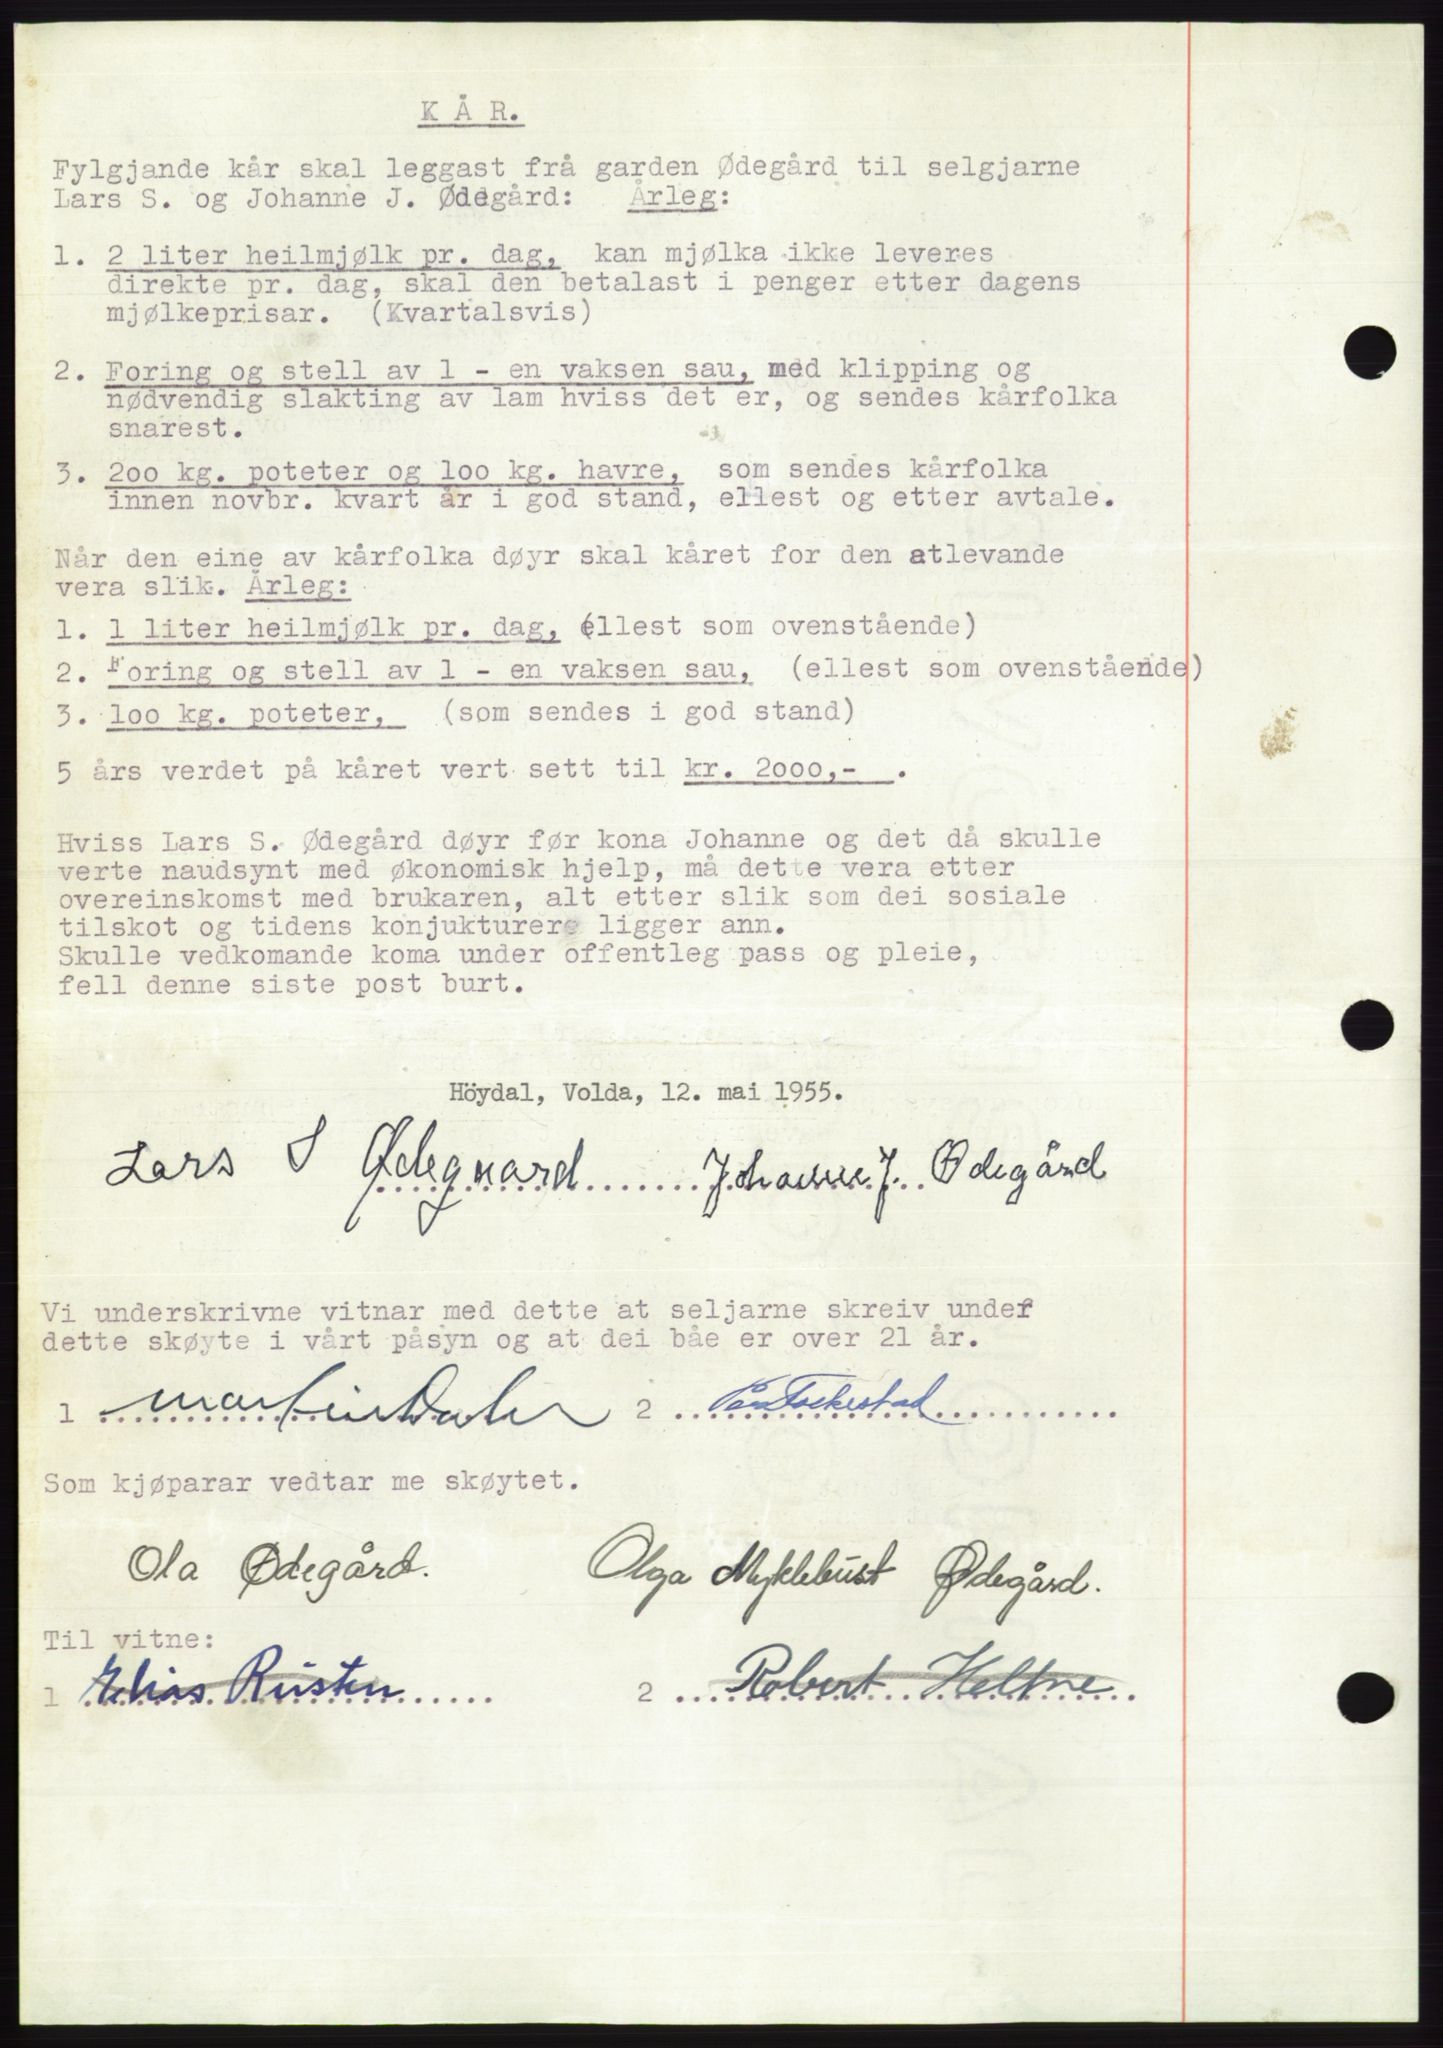 K Å R.
Fylgjande kår skal leggast frå garden Ødegård til selgjarne
Lars S. og Johanne J. Ødegård: Årleg:
1. 2 liter heilmjølk pr. dag, kan mjølka ikke leveres
direkte pr. dag, skal den betalast i penger etter dagens
mjølkeprisar. (Kvartalsvis)
2. Foring og stell av 1 - en vaksen sau, med klipping og
nødvendig slakting av lam hviss det er, og sendes kårfolka
snarest.
3. 200 kg. poteter og 100 kg. havre, som sendes kårfolka
innen novbr. kvart år i god stand, ellest og etter avtale.
Når den eine av kårfolka døyr skal kåret for den atlevande
vera slik. Årleg:
1. 1 liter heilmjølk pr. dag, (ellest som ovenstående)
2. Foring og stell av 1 - en vaksen sau, (ellest som ovenstående)
3. 100 kg. poteter, (som sendes i god stand)
5 års verdet på kåret vert sett til kr. 2000,- .
Hviss Lars S. Ødegård døyr før kona Johanne og det då skulle
verte naudsynt med økonomisk hjelp, må dette vera etter
overeinskomst med brukaren, alt etter slik som dei sosiale
tilskot og tidens konjukturere ligger ann.
Skulle vedkomande koma under offentleg pass og pleie,
fell denne siste post burt.
Höydal, Volda, 12. mai 1955.
Lars S Ødeguard Johanne J. Ødegård
Vi underskrivne vitnar med dette at seljarne skreiv under
dette skøyte i vårt påsyn og at dei båe er over 21 år.
1 Martin 2
Som kjøparar vedtar me skøytet.
Ola Ødegård. Olga Myklebust Ødegård.
Til vitne:
1 Elias Rusten 2 Robert Heltne